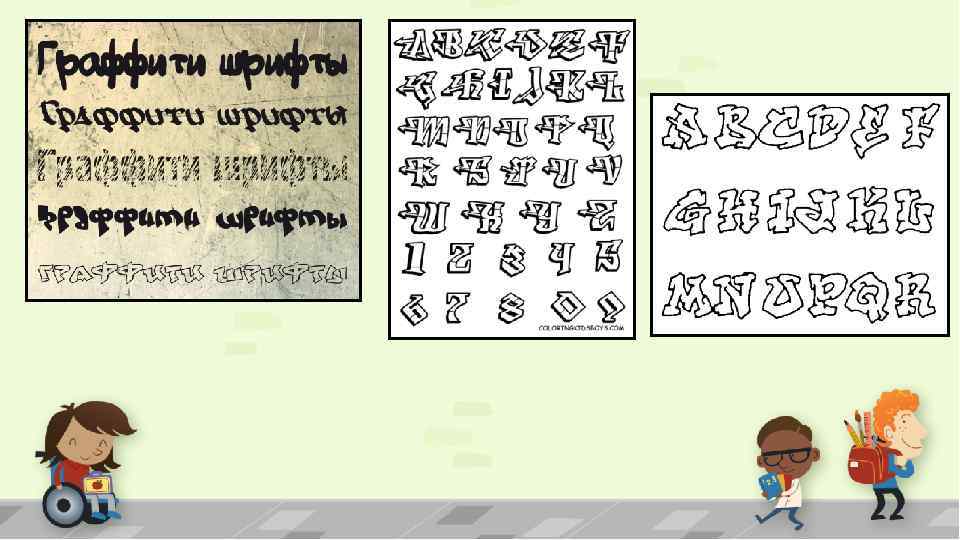 Граффити шрифты
Граффити шрифты
Граффити шрифты
Граффити шрифты
ГРАФФИТИ ШРИФТЫ
A B C D E F
G H I J K L
M N O P Q
R S T U V
W X Y Z
1 2 3 4 5
6 7 8 0 9
COLORINGKIDSBOYS.COM
A B C D E F
G H I J K L
M N O P Q R
1 2 3